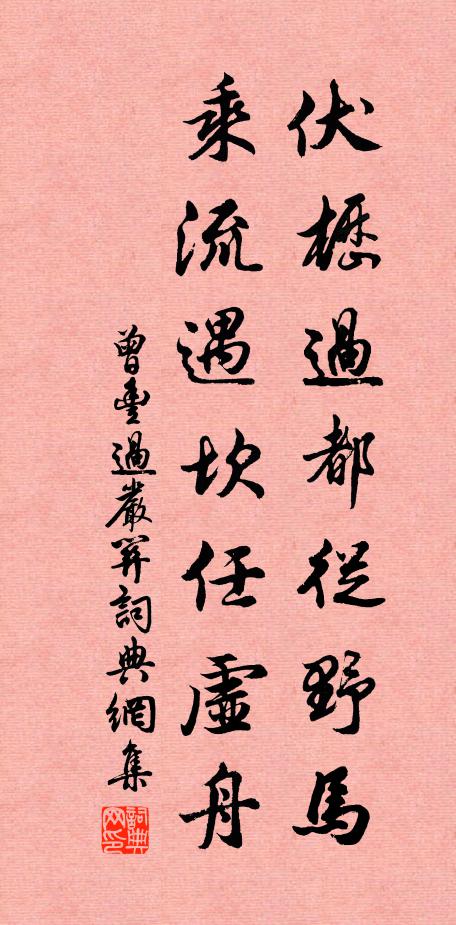 伏櫪過都從野馬
乘流遇坎任虛舟
曾豐過嚴關詞典網集
詞典网印